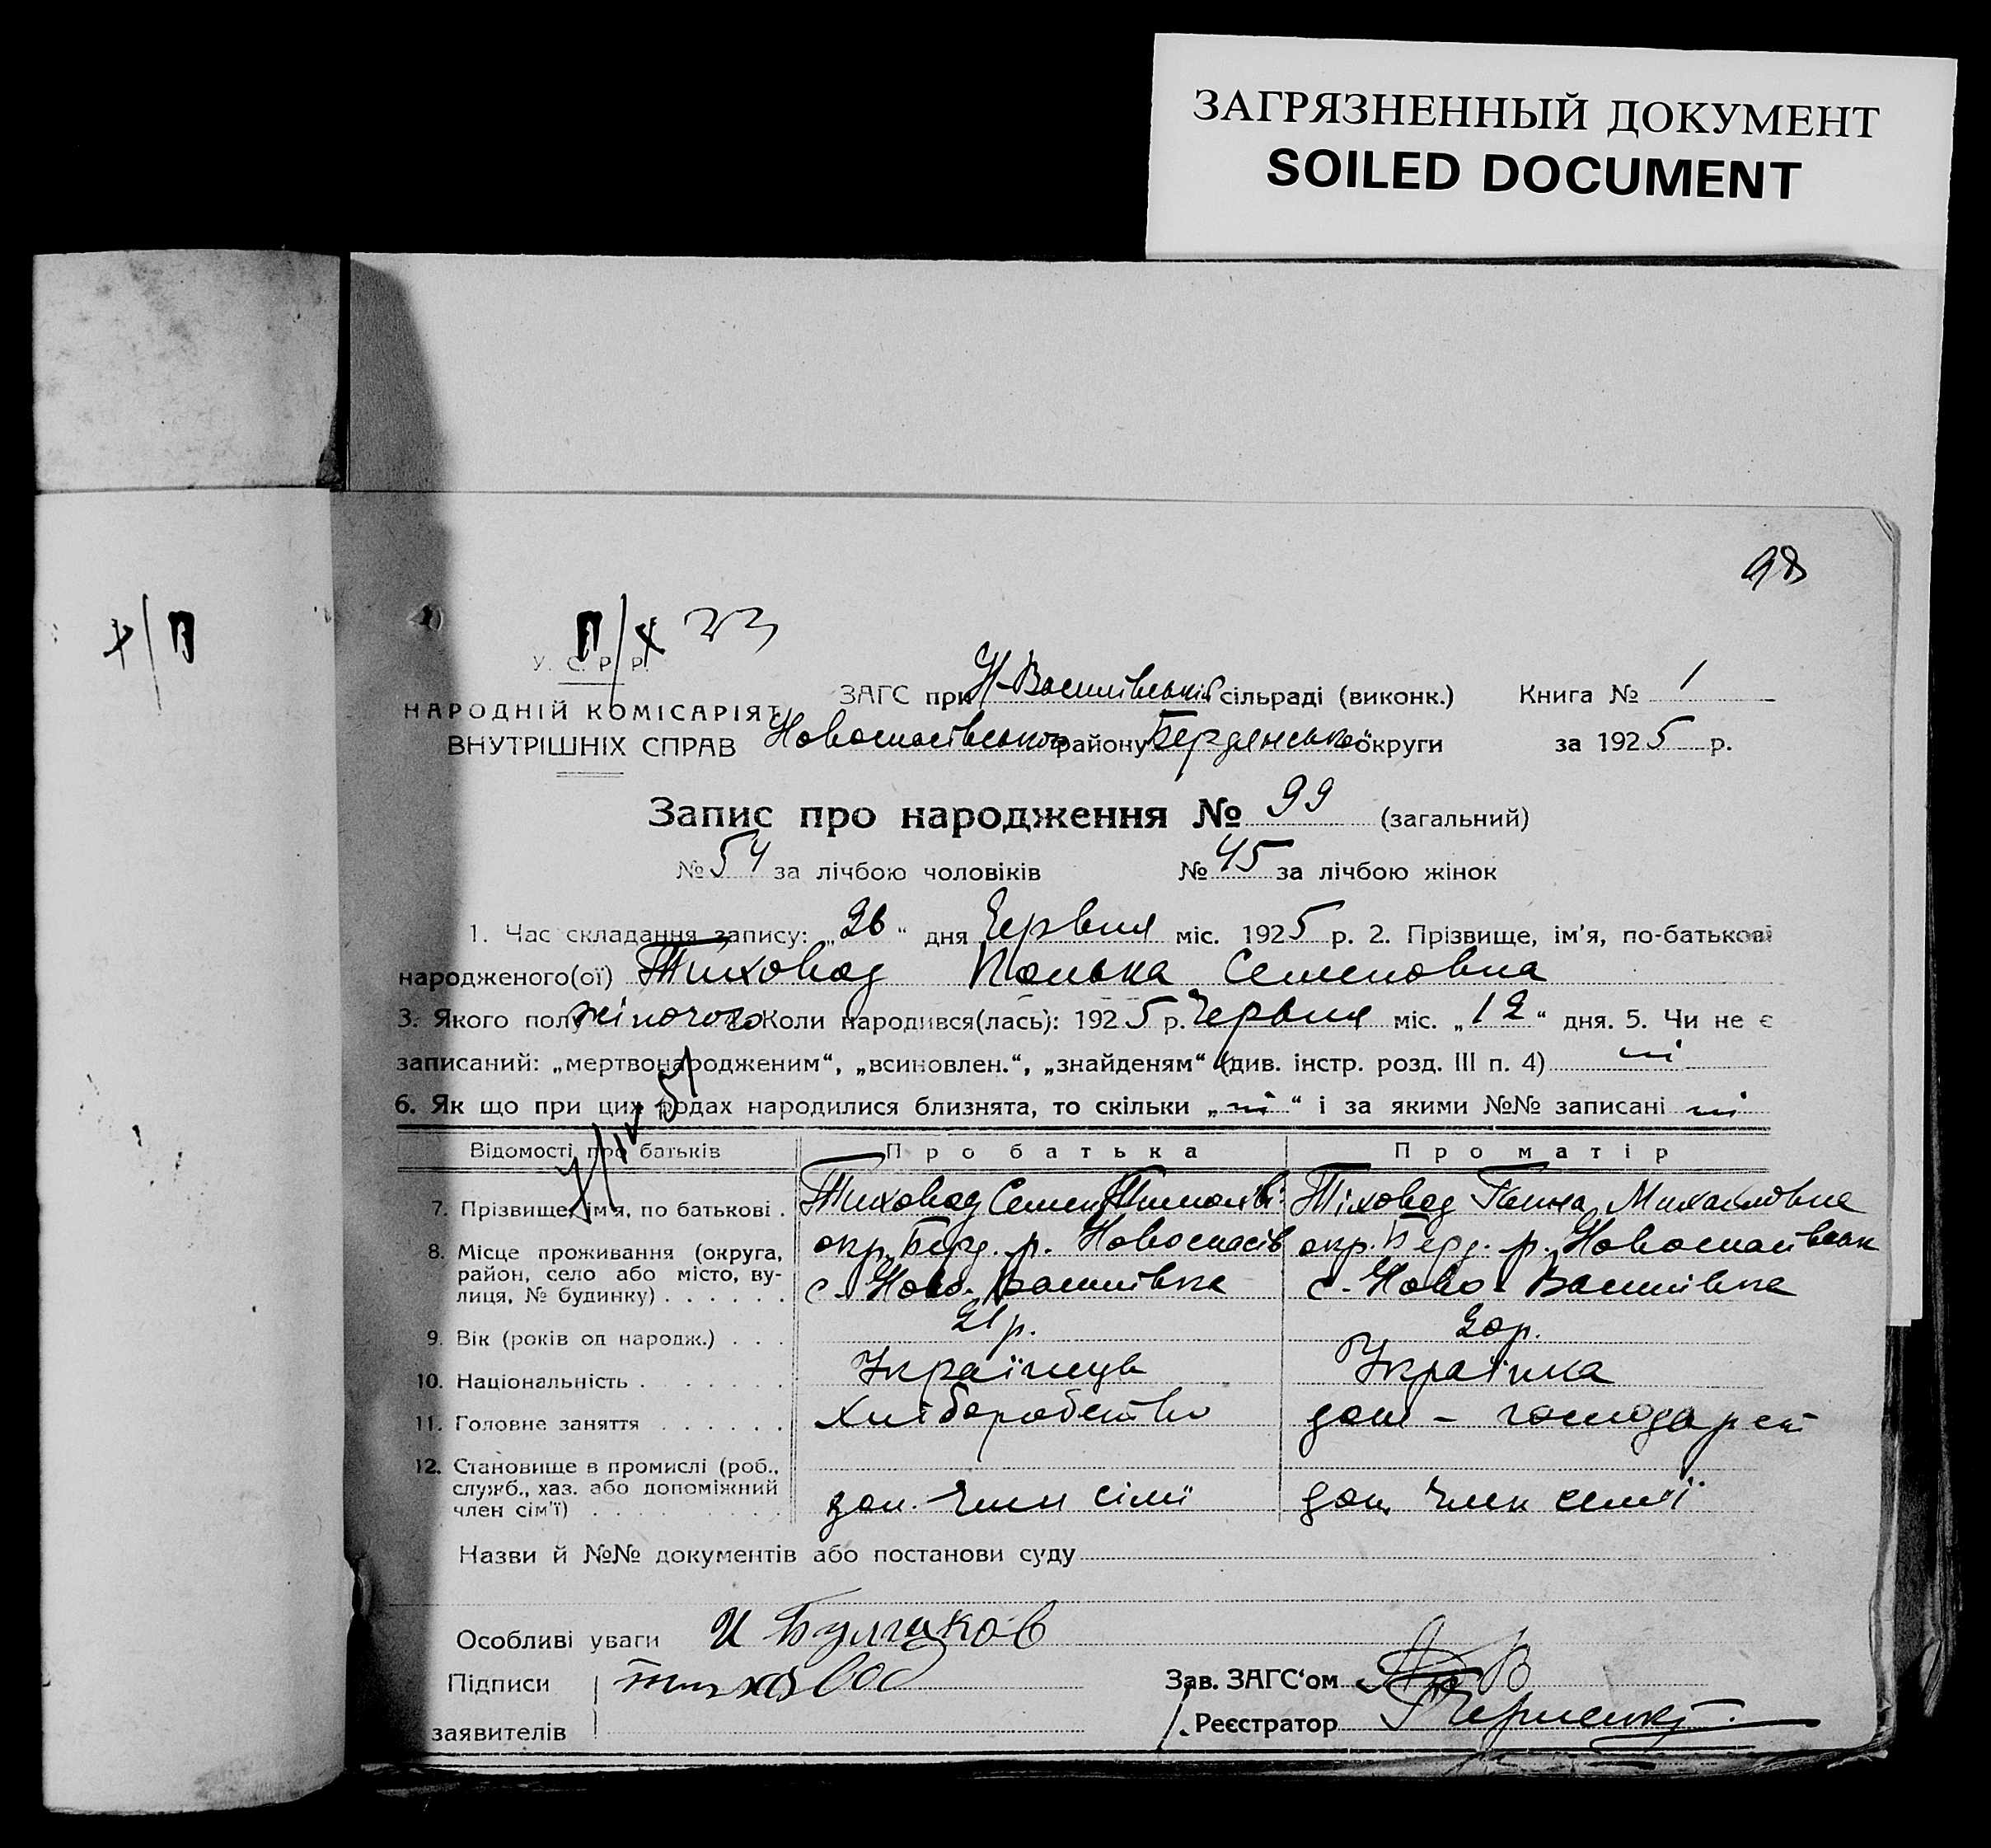 ЗАГРЯЗНЕННЫЙ ДОКУМЕНТ
SOILED DOCUMENT
98
х/П
П/х 23
У. С. Р. Р.
НАРОДНІЙ КОМІСАРІЯТ
ВНУТРІШНІХ СПРАВ
ЗАГС при Н-Василівській сільраді (виконк.) Книга № 1
Новоспасівського району Бердянської округи за 1925 р.
Запис про народження № 99 (загальний)
№ 54 за лічбою чоловіків № 45 за лічбою жінок
1. Час складання запису: „26“ дня Червня міс. 1925 р. 2. Прізвище, ім’я, по-батькові
народженого(ої) Тиховод Полька Семеновна
3. Якого полу жіночого Коли народився(лась): 1925 р. Червня міс. „12“ дня. 5. Чи не є
записаний: „мертвонародженим“, „всиновлен.“, „знайденям“ (див. інстр. розд. III п. 4) ні
6. Як що при цих родах народилися близнята, то скільки „ні“ і за якими №№ записані ні
Відомості про батьків Про батька Про матір
7. Прізвище, ім’я, по батькові . Тиховод Семен Тіховод Ганна Михайловна
8. Місце проживання (округа, район, село або місто, вулиця, № будинку) . . . . . . окр. Берд. р. Новоспасів окр. Берд. р. Новоспасівськ
с. Ново-Василівка с. Ново-Василівка
9. Вік (років од народж.) . . . 21 р. 20 р.
10. Національність . . . . . . Українець Українка
11. Головне заняття . . . . . . Хліборобство дом - господарст
12. Становище в промислі (роб., служб., хаз. або допоміжний член сім’ї) . . . . . . . . . доп. член сімї доп. член семї
Назви й №№ документів або постанови суду
Особливі уваги И Булгаков
Підписи Тиховод Зав. ЗАГС‘ом
заявителів Реєстратор